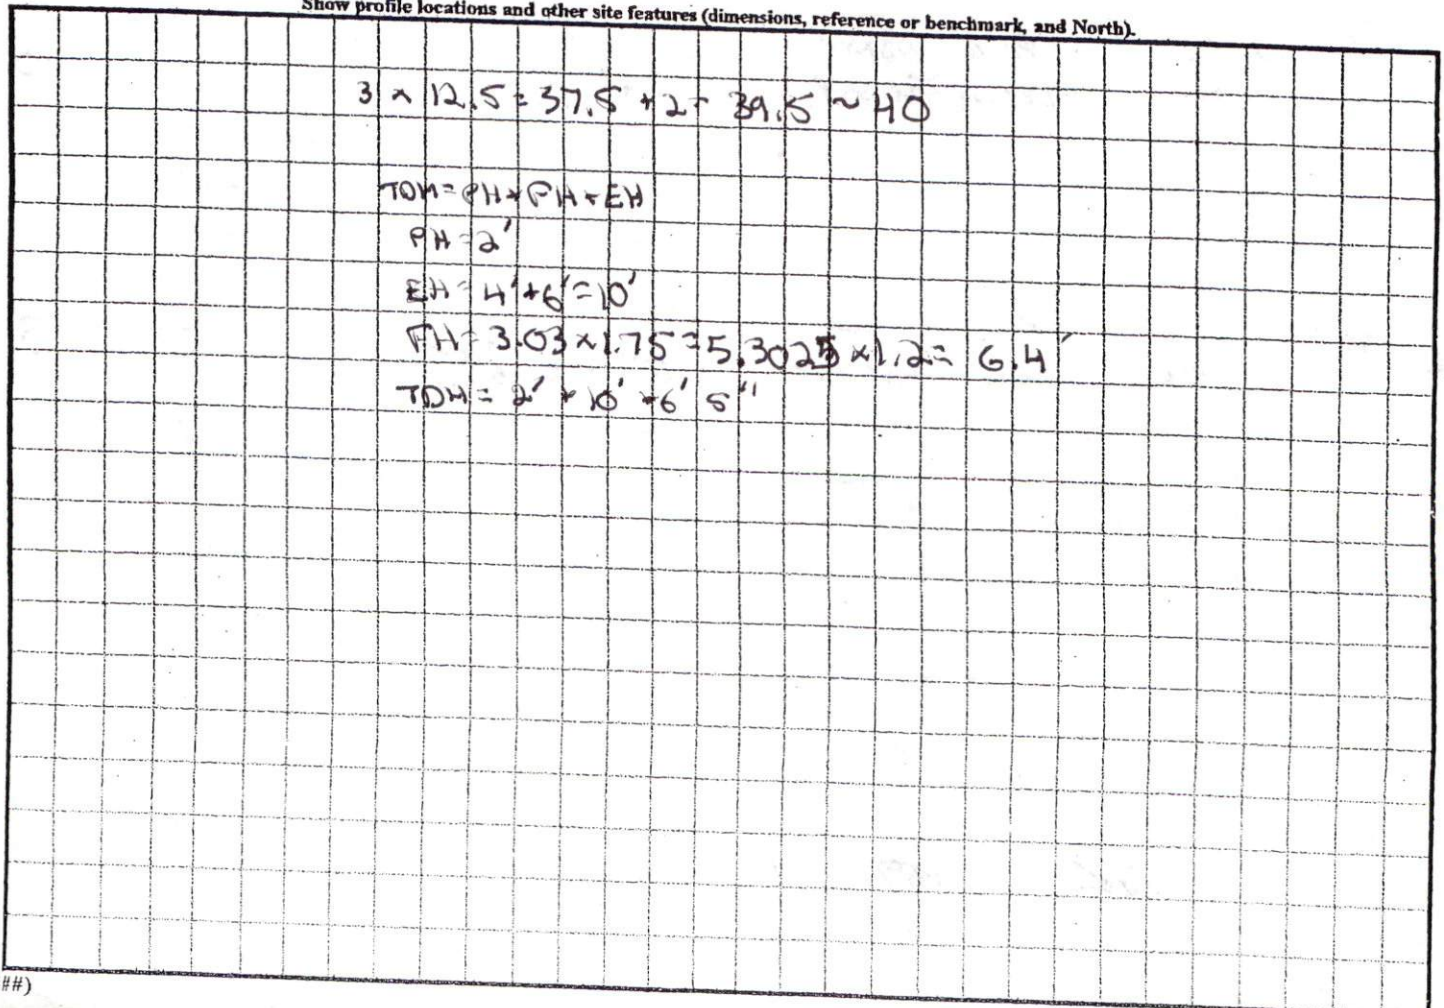 Show profile locations and other site features (dimensions, reference or benchmark, and North).
3 × 12.5 = 37.5 + 2 = 39.5 ~ 40
TDH = PH + FH + EH
PH = 2'
EH = 4' + 6' = 10'
FH = 3.03 × 1.75 = 5.3025 × 1.2 = 6.4'
TDH = 2' + 10' + 6' 5"
##)